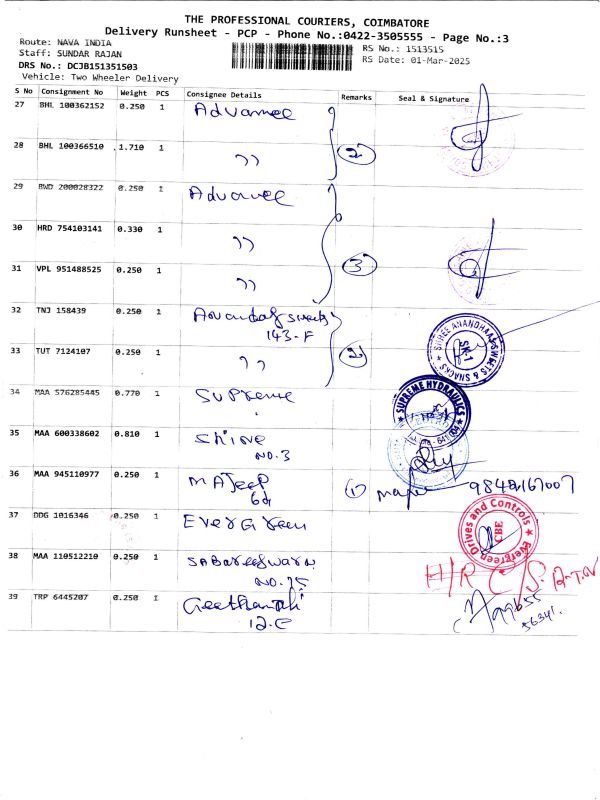 THE PROFESSIONAL COURIERS, COIMBATORE
Delivery Runsheet - PCP - Phone No.:0422-3505555 - Page No.:3
Route: NAVA INDIA
Staff: SUNDAR RAJAN
DRS No.: DCJB151351503
Vehicle: Two Wheeler Delivery
RS No.: 1513515
RS Date: 01-Mar-2025
S No Consignment No Weight PCS Consignee Details Remarks Seal & Signature
27 BHL 100362152 0.250 1 Advancee
28 BHL 100366510 1.710 1 ,, 2
29 BWD 200028322 0.250 1 Advancee
30 HRD 754103141 0.330 1 ,,
31 VPL 951488525 0.250 1 ,, 3
32 TNJ 158439 0.250 1 sweets
143-F
33 TUT 7124107 0.250 1 ,, 2
SHREE ANANDHAAS SWEETS & SNACKS
SK-1
34 MAA 576285445 0.770 1 Supreme
SUPREME HYDRAULICS
35 MAA 600338602 0.810 1 Shine
NO.3
36 MAA 945110977 0.250 1 MAJeeP
6d
1
37 DDG 1016346 0.250 1 EverGreen
Evergreen Drives and Controls
CBE
38 MAA 110512210 0.250 1 SABareeswaran
NO.75
H/R
39 TRP 6445207 0.250 1 Geethanjali
12.C